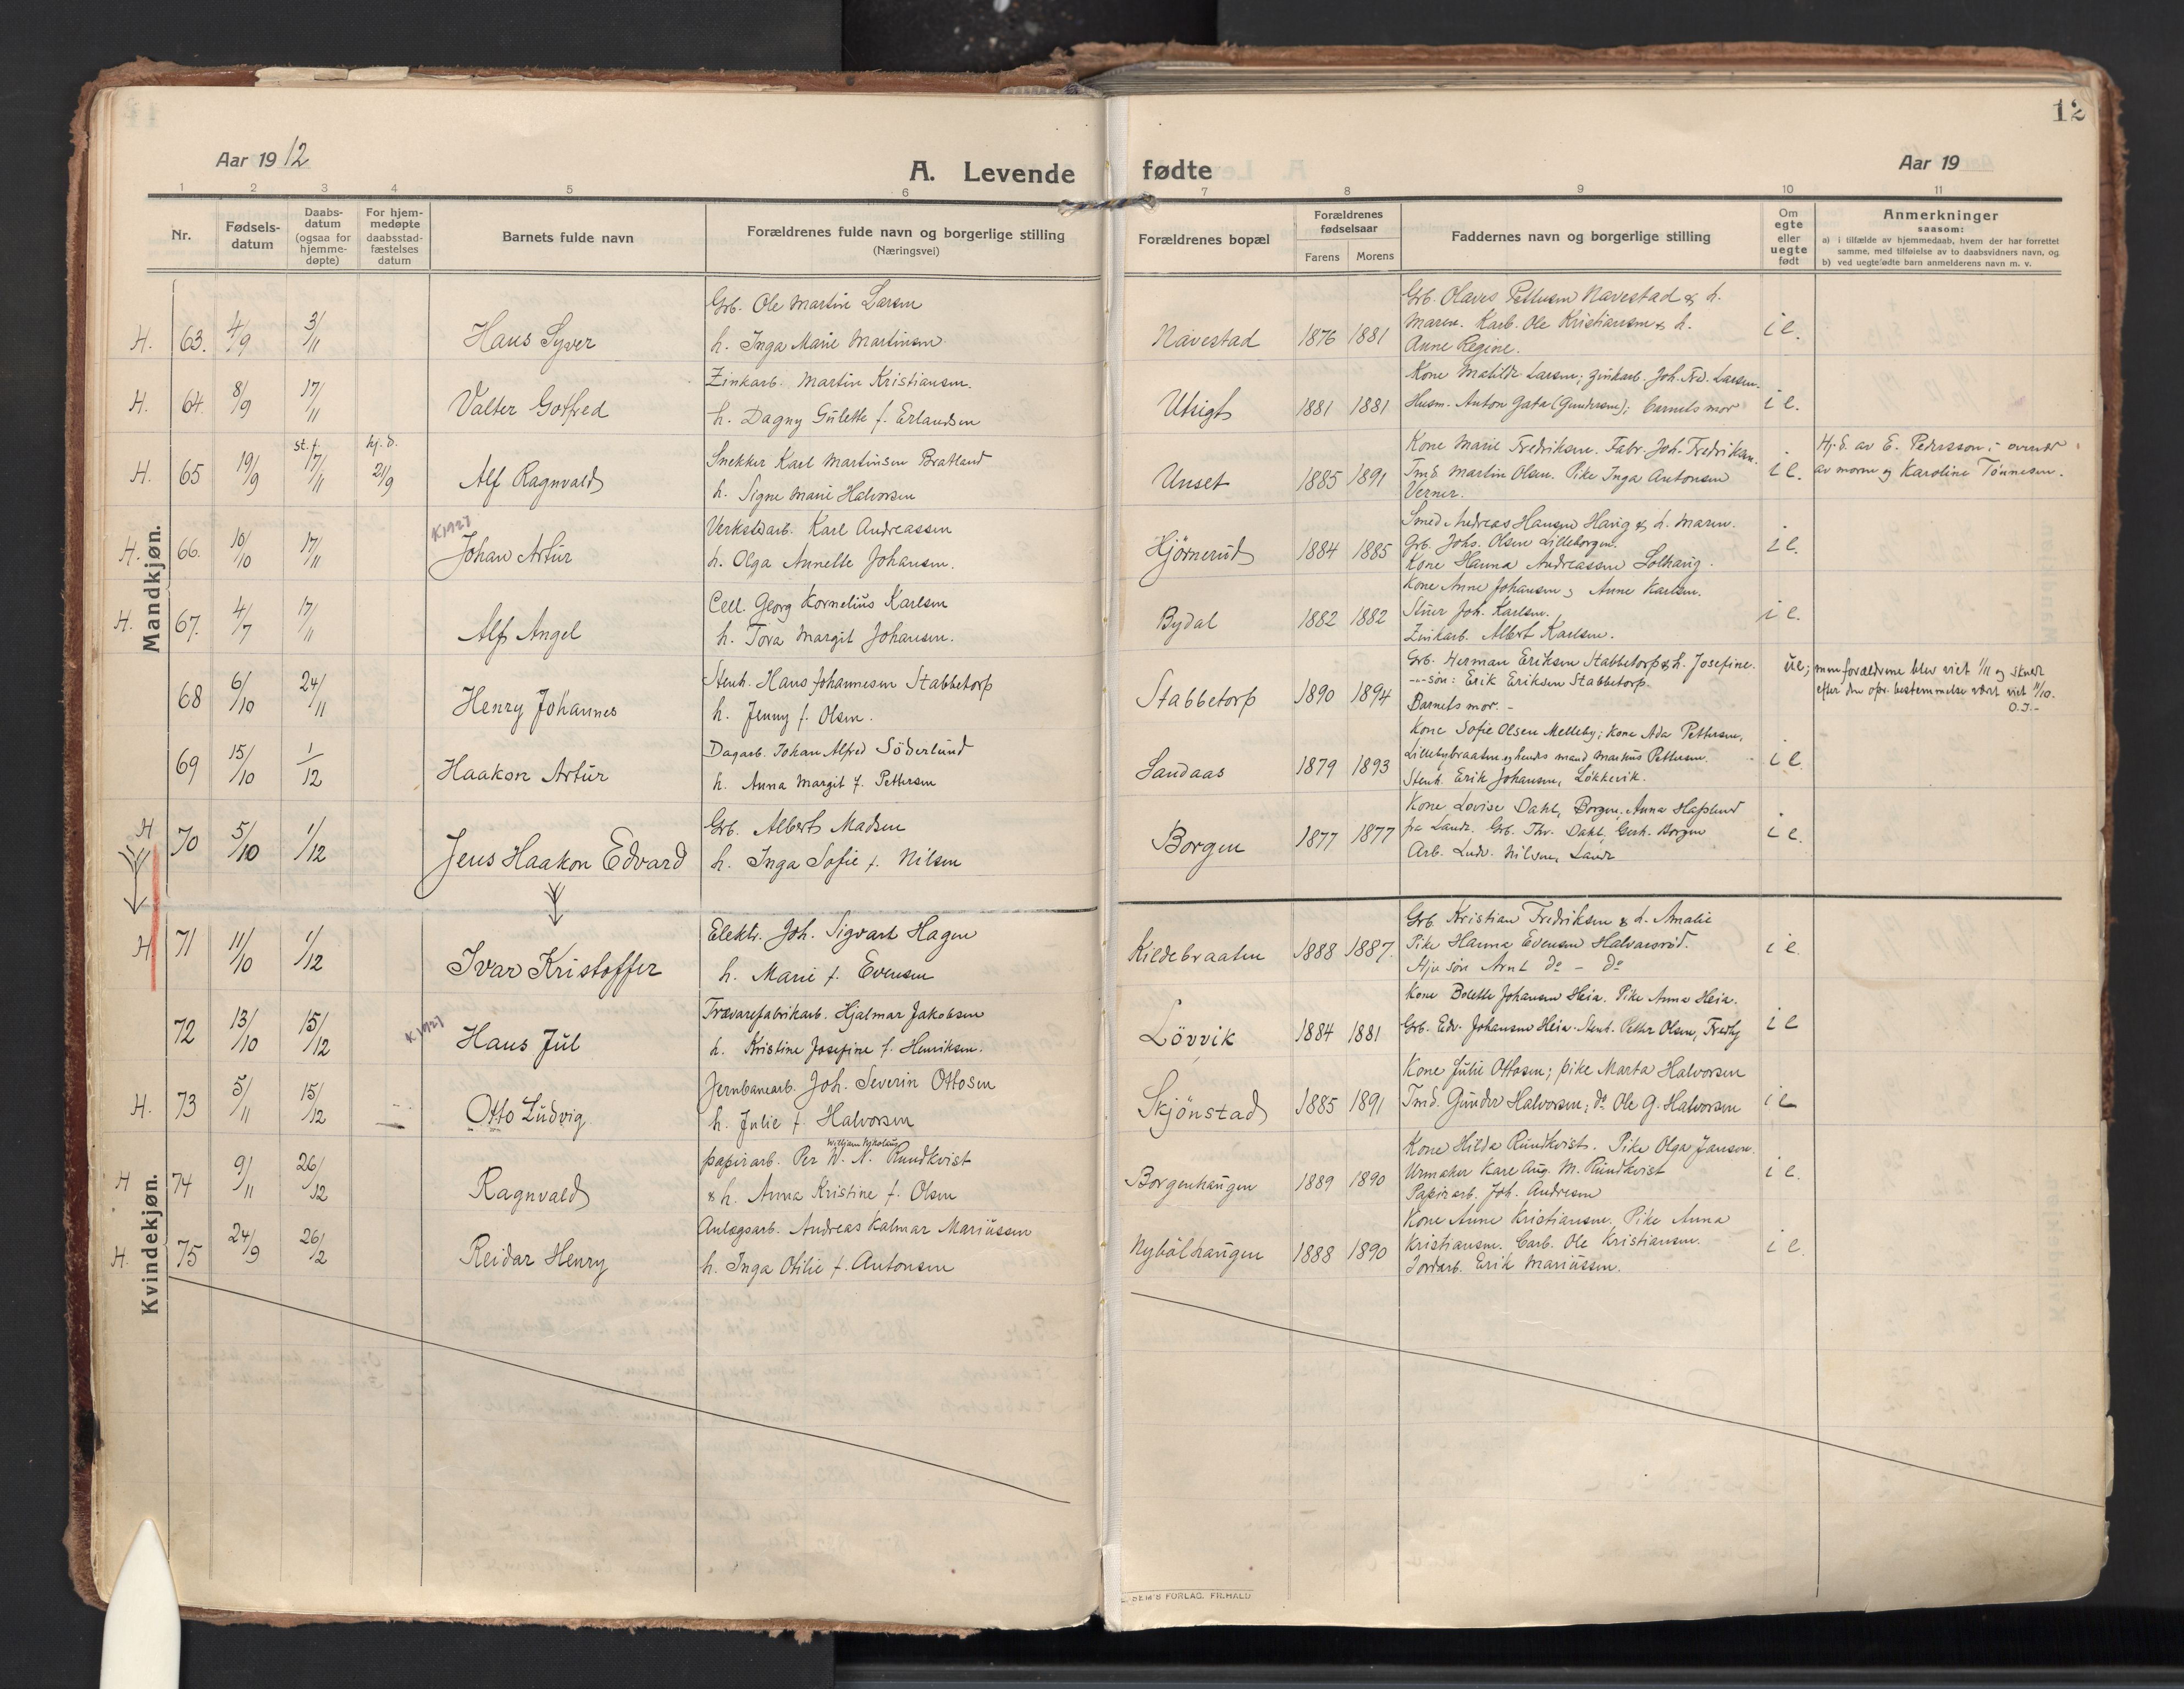 12
Aar 1912
A. Levende fødte
Aar 19
1 2 3 4 5 6 7 8 9 10 11
Nr.
Fødsels-
datum
Daabs-
datum
(ogsaa for
hjemme-
døpte)
For hjem-
medøpte
daabsstad-
fæstelses
datum
Barnets fulde navn
Forældrenes fulde navn og borgerlige stilling
(Næringsvei)
Forældrenes bopæl
Forældrenes
fødselsaar
Farens Morens
Faddernes navn og borgerlige stilling
Om
egte
eller
uegte
født
Anmerkninger
saasom:
a) i tilfælde av hjemmedaab, hvem der har forrettet
samme, med tilføielse av to daabsvidners navn, og
b) ved uegtefødte barn anmelderens navn m. v.
Mandkjøn.
Kvindekjøn.
H. 63. 4/9 3/11 Hans Syver
Grb. Ole Martin Larsen
h. Inga Marie Martinsen
Navestad 1876 1881
Grb. Olaves Pettersen Navestad & h.
Maren. Karb. Ole Kristiansen & h.
Anne Regine.
i e.
H. 64. 8/9 17/11 Valter Gotfred
Zinkarb. Martin Kristiansen.
h. Dagny Gulette f. Erlandsen
Utsigt 1881 1881
Kone Matilde Larsen; zinkarb. Joh. Fred. Larsen.
Husm. Anton Gata (Gundersen); barnets mor
i e.
H. 65 19/9 st. f. 17/11 hj. d. 21/9 Alf Ragnvald
Snekker Karl Martinsen Bratland
h. Signe Marie Halvorsen
Unset 1885 1891
Kone Marie Fredriksen. Fabr. Joh. Fredriksen.
Tmd. Martin Olsen. Pike Inga Antonsen
Verner.
i e.
Hj. d. av E. Pedersson; overvær
av moren og Karoline Tønnesen.
H. 66. 10/10 17/11 K1927 Johan Artur
Verkstdarb. Karl Andreassen
h. Olga Annette Johansen.
Hjørnerud 1884 1885
Smed Andreas Hansen Havig & h. Maren.
Grb. Johs. Olsen Lilleborgen.
Kone Hanna Andreassen Solhavig.
i e.
H. 67. 4/7 17/11 Alf Angel
Cell. Georg Kornelius Karlsen
h. Tora Margit Johansen.
Bydal 1882 1882
Kone Anne Johansen & Anne Karlsen.
Stuer Joh. Karlsen.
Zinkarb. Albert Karlsen.
i e.
68 6/10 24/11 Henry Johannes
Stenh. Hans Johannesen Stabbetorp
h. Jenny f. Olsen.
Stabbetorp 1890 1894
Grb. Herman Eriksen Stabbetorp & h. Josefine.
--- søn: Erik Eriksen Stabbetorp.
Barnets mor. -
ue; men forældrene blev viet 1/11 og skulde
efter den opr. bestemmelse vært viet 11/10.
O.J.-
69 15/10 1/12 Haakon Artur
Dagarb. Johan Alfred Söderlund
h. Anna Margit f. Pettersen
Sandaas 1879 1893
Kone Sofie Olsen Melleby; Kone Ada Pettersen,
Lillebybraaten og hendes mand Markus Pettersen.
Stenh. Erik Johansen, Løkkevik.
i e.
H 70 5/10 1/12 Jens Haakon Edvard
Grb. Albert Madsen
h. Inga Sofie f. Nilsen
Borgen 1877 1877
Kone Lovise Dahl, Borgen; Anna Hafslund
fra Lande. Grb. Thv. Dahl, Gesh. Borgen
Arb. Ludv. Nilsen, Lande
i e.
H 71 11/10 1/12 Ivar Kristoffer
Elektr. Joh. Sigvart Hagen
h. Marie f. Evensen
Kildebraaten 1888 1887.
Grb. Kristian Fredriksen & h. Amalie
Pike Hanna Evensen Halvarsrød.
Hjv søn Arnt do - do
i e.
72 13/10 15/12 K1927 Hans Jul
Trævarefabrikarb. Hjalmar Jakobsen
h. Kristine Josefine f. Henriksen.
Lövvik 1884 1881
Kone Bolette Johansen Heia. Pike Anna Heia.
Grb. Edv. Johansen Heia. Stenh. Petter Olsen, Fredly
i e
H. 73 5/11 15/12 Otto Ludvig
Jernbanearb. Joh. Severin Ottosen
h. Julie f. Halvorsen
Skjönstad 1885 1891
Kone Julie Ottosen; pike Marta Halvorsen
Tmd. Gunder Halvorsen; do Ole G. Halvorsen
i e
H 74 9/11 26/12 Ragnvald
William Nikolaus
papirarb. Per W. N. Rundkvist
& h. Anna Kristine f. Olsen
Borgenhaugen 1889 1890
Kone Hilda Rundkvist. Pike Olga Janson.
Urmaker Karl Aug. M. Rundkvist
Papirarb. Joh. Andresen
i e.
H. 75 24/9 26/12 Reidar Henry
Anlægsarb. Andreas Kalmar Mariussen
h. Inga Otilie f. Antonsen
Nybölhaugen 1888 1890
Kone Anne Kristiansen, Pike Anna
Kristiansen. Carb. Ole Kristiansen.
Jordarb. Erik Mariussen.
i e.
SEM'S FORLAG. FR.HALD